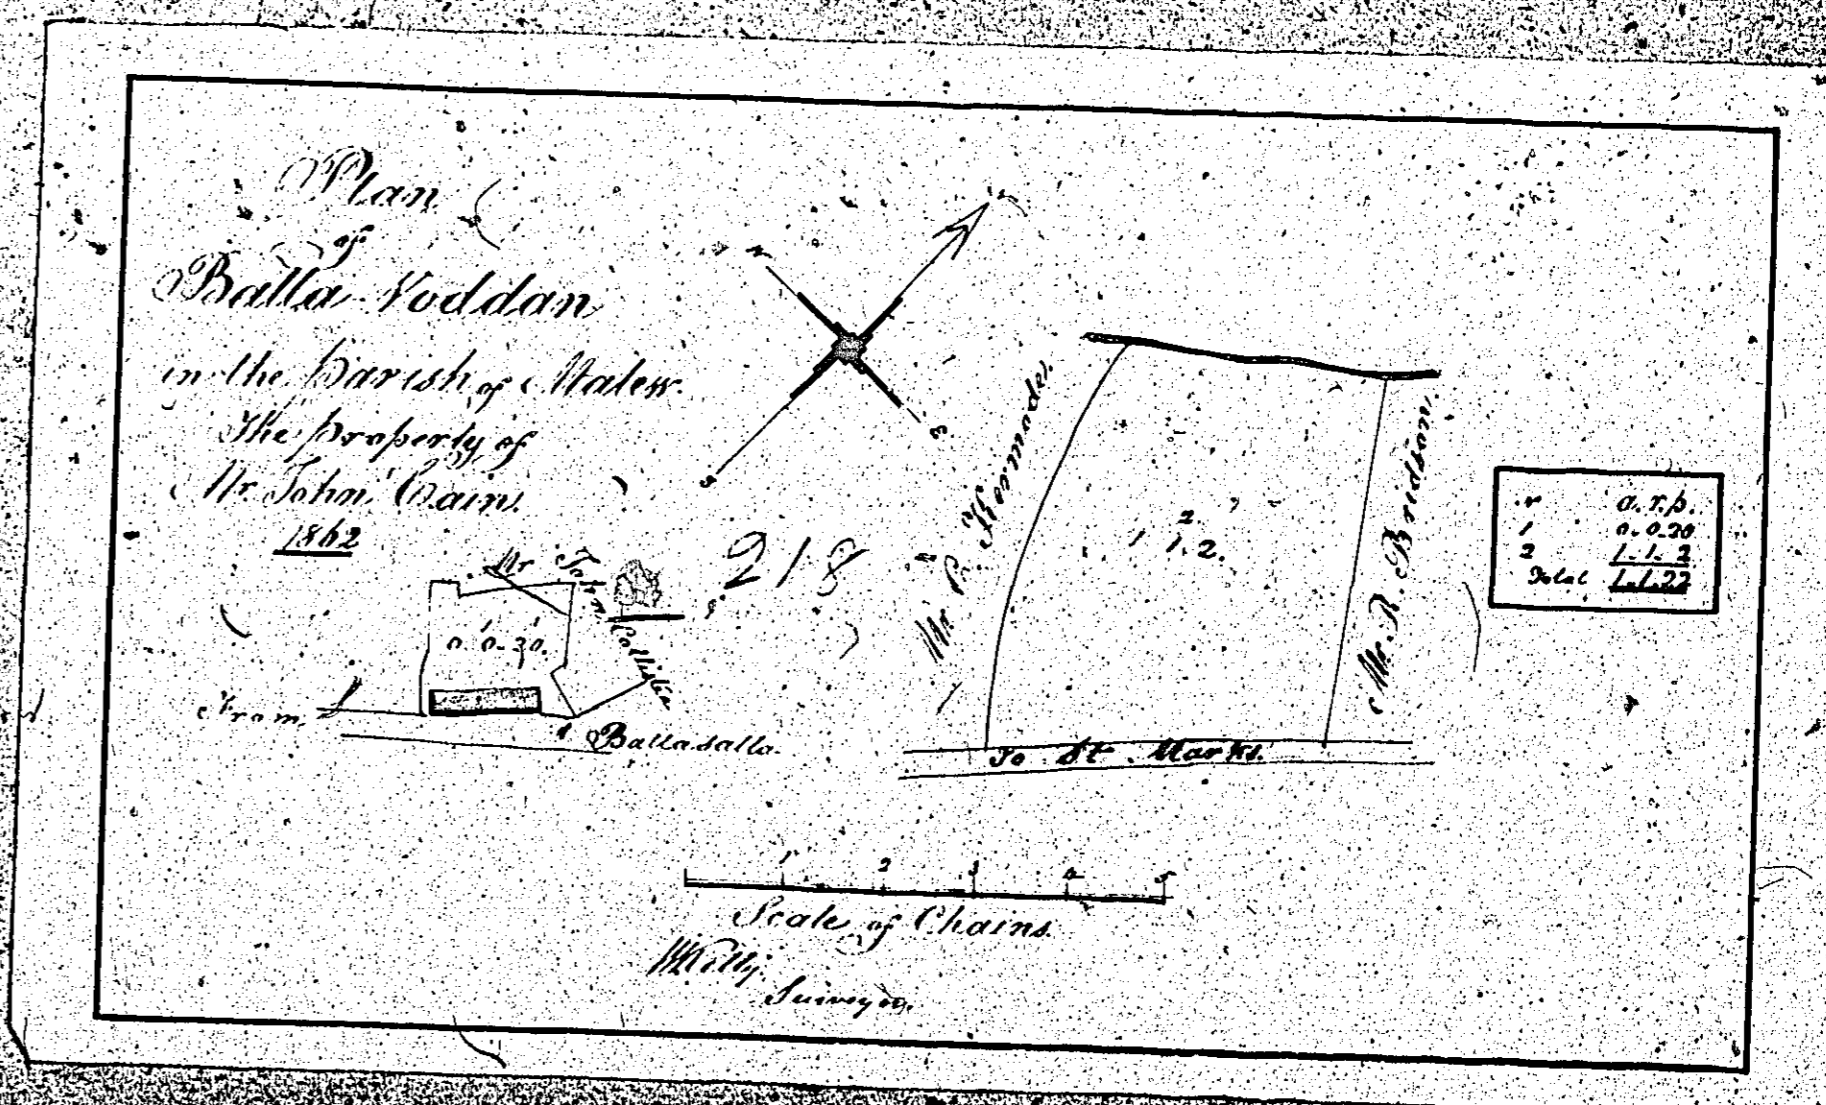 Plan
of
Balla Voddan
in the Parish of Malew.
The property of
Mr. John Cain.
1862
Mr John
218
1
0.0.20.
From
Ballasalla.
Mr. R. Kermode.
2.
1.1.2.
Mr. R. Bridson.
To St. Marks.
N
E
S
a. r. p.
1 0.0.20
2 1.1.2
Total 1.1.22
1 2 3 4 5
Scale of Chains.
Kelly
Surveyor.